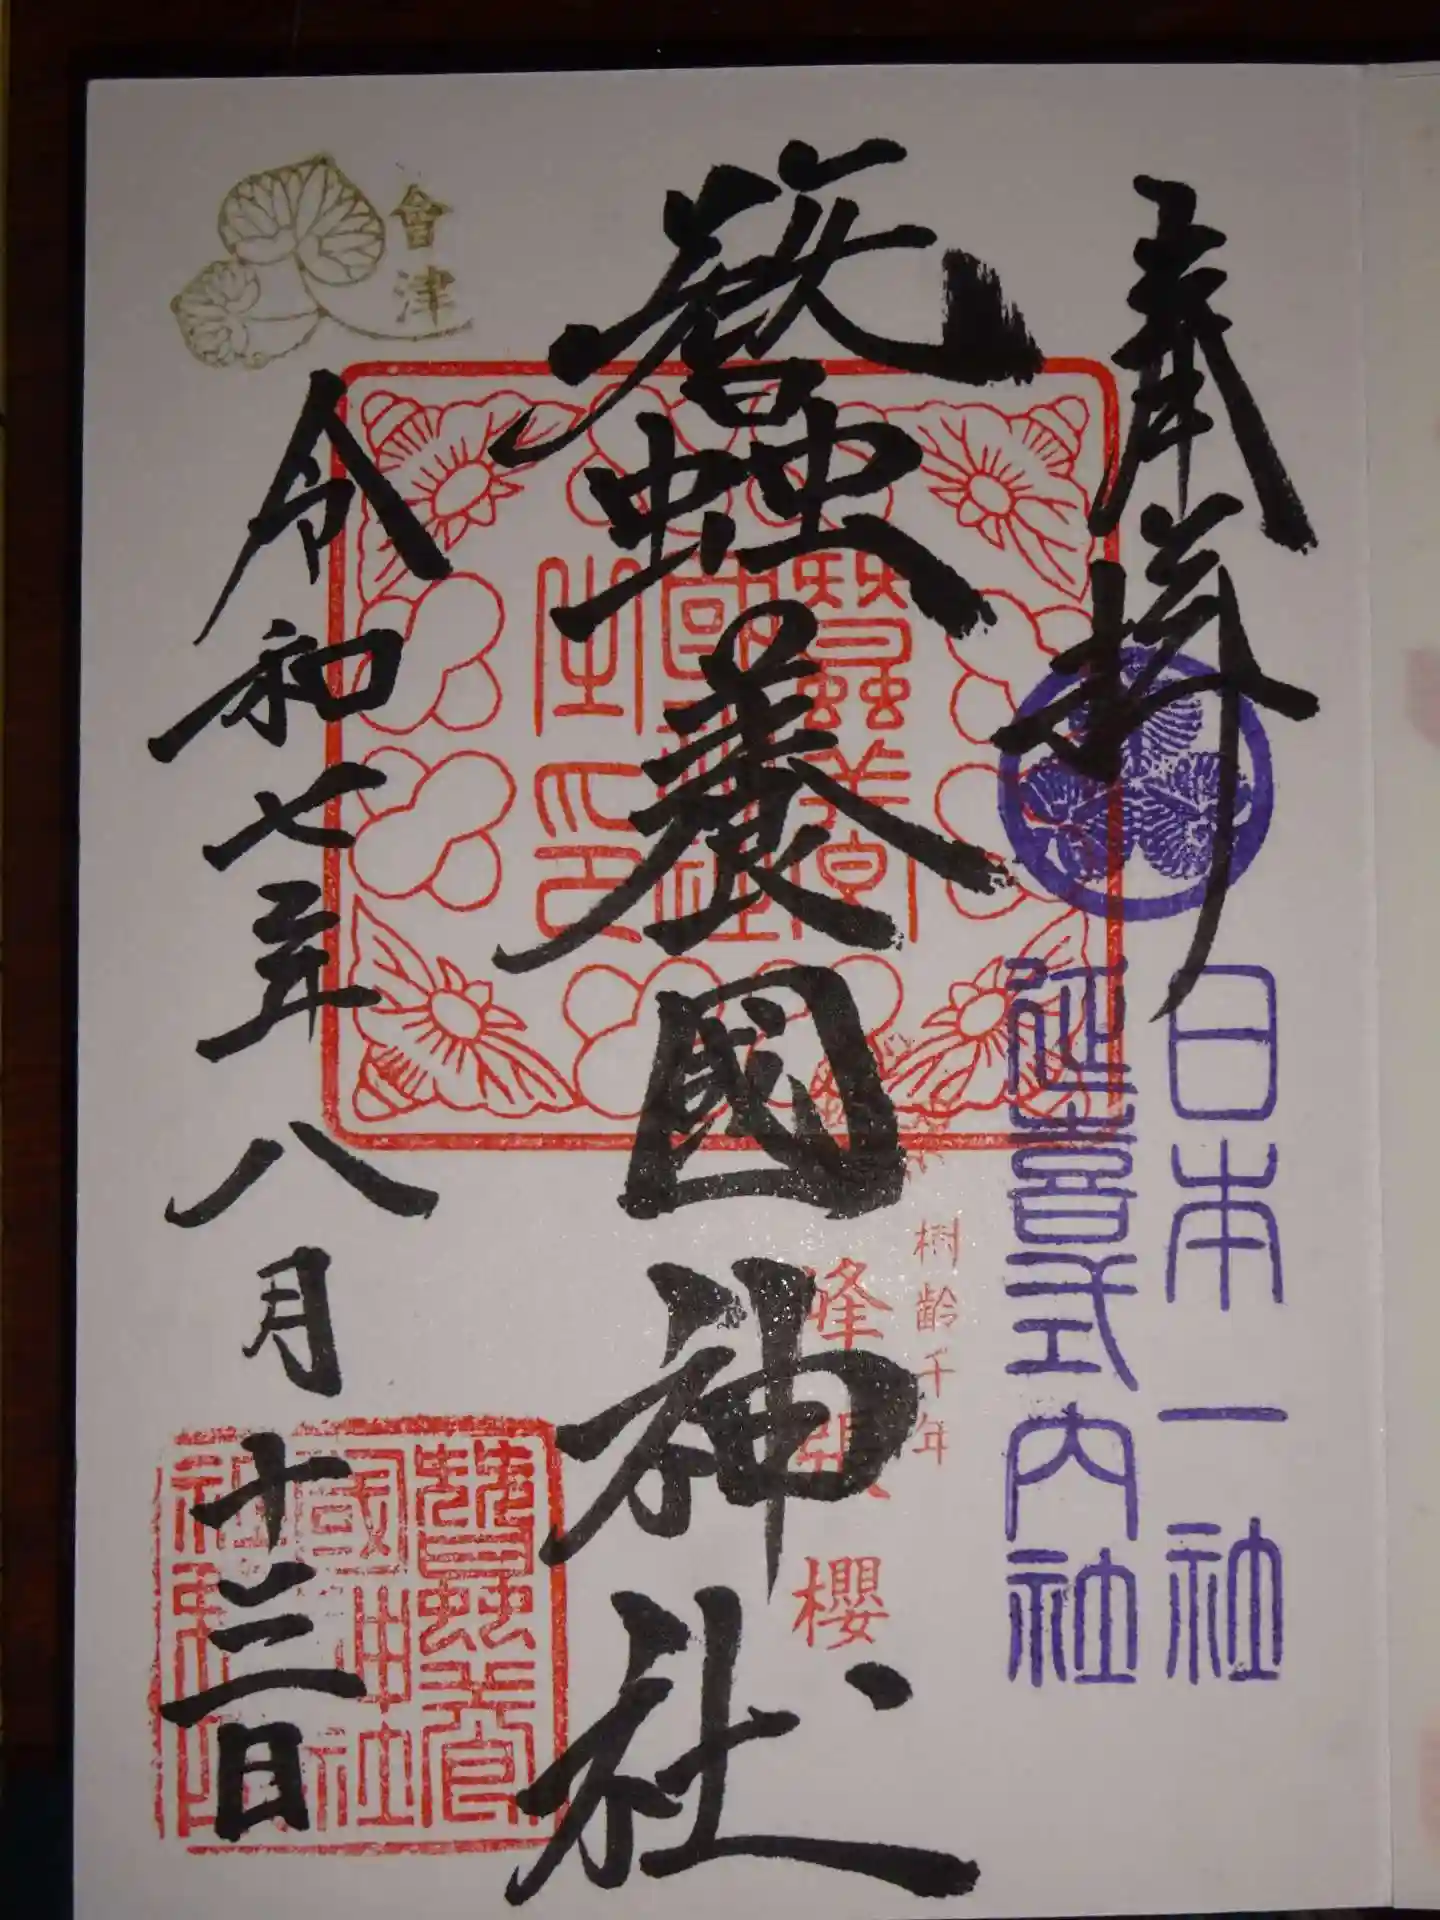 奉拝
日本一社
延喜式内社
蠶養國神社
樹齢千年
峰張櫻
會津
令和七年八月十三日
蠶養國神社之印